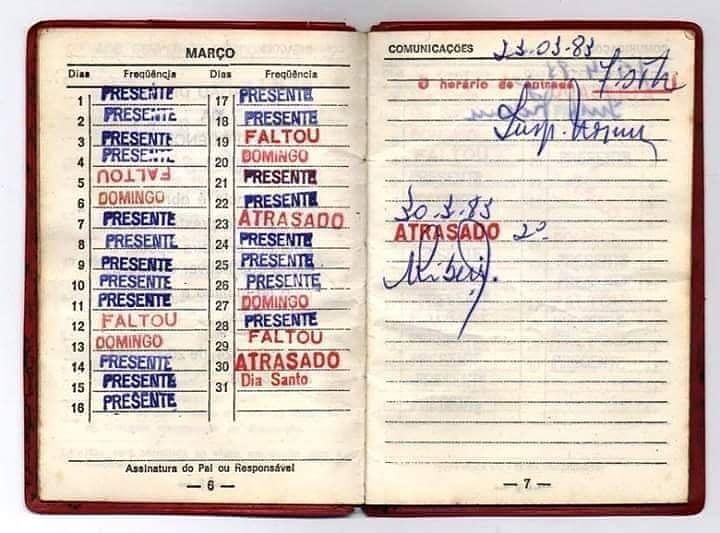 MARÇO
Dias Freqüência Dias Freqüência
1 PRESENTE
2 PRESENTE
3 PRESENTE
4 PRESENTE
5 FALTOU
6 DOMINGO
7 PRESENTE
8 PRESENTE
9 PRESENTE
10 PRESENTE
11 PRESENTE
12 FALTOU
13 DOMINGO
14 PRESENTE
15 PRESENTE
16 PRESENTE
17 PRESENTE
18 PRESENTE
19 FALTOU
20 DOMINGO
21 PRESENTE
22 PRESENTE
23 ATRASADO
24 PRESENTE
25 PRESENTE
26 PRESENTE
27 DOMINGO
28 PRESENTE
29 FALTOU
30 ATRASADO
31 Dia Santo
Assinatura do Pai ou Responsável
— 6 —
COMUNICAÇÕES 23-03-83
O horário de entrada
30-3-83
ATRASADO 2º
— 7 —